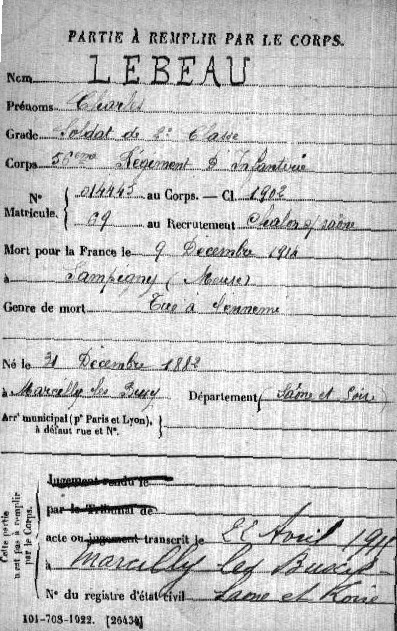 PARTIE À REMPLIR PAR LE CORPS.
Nom LEBEAU
Prénoms Charles
Grade Soldat de 2e Classe
Corps 56eme Régement d'Infanterie
N° Matricule. 014445 au Corps. — Cl. 1902
69 au Recutement Chalon s/ Saône
Mort pour la France le 9 Décembre 1914
à Sampigny (Meuse)
Genre de mort Tué à l'ennemi
Né le 31 Décembre 1882
à Marcilly les Buxy Département (Saône et Loire)
Arrt municipal (pr Paris et Lyon),
à défaut rue et N°.
Cette partie n'est pas à remplir par le Corps.
Jugement rendu le
par le Tribunal de
acte ou jugement transcrit le 22 Avril 1915
à Marcilly les Buxy
N° du registre d'état civil Saone et Loire
101-708-1922. [26434]